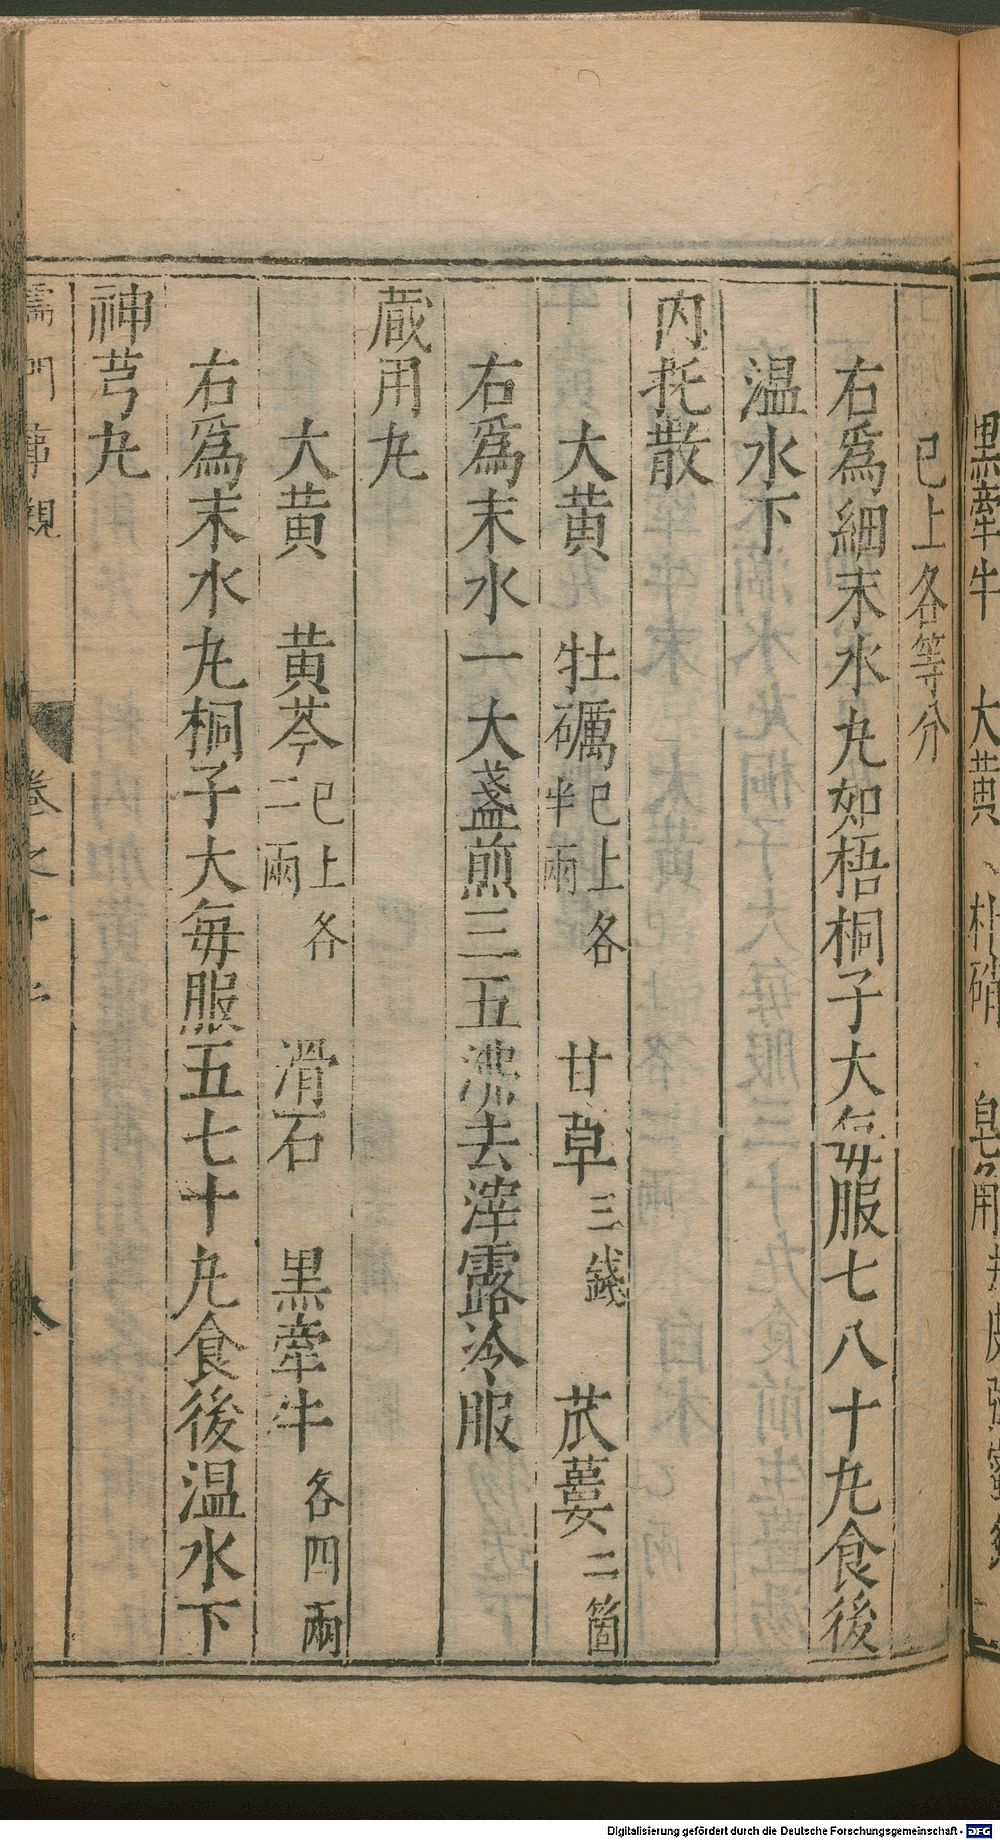 黒牽牛　大黄　朴硝　皂角
已上各等分
右爲細末水丸如梧桐子大每服七八十丸食後
温水下
内托散
大黄　牡礪已上各半兩　甘草三錢　苽蔞二箇
右爲末水一大盞煎三五沸去滓露冷服
蔵用丸
大黄　黄芩已上各二兩　滑石　黒牽牛各四兩
右爲末水丸桐子大每服五七十丸食後温水下
神芎丸
儒門事親　卷之十
Digitalisierung gefördert durch die Deutsche Forschungsgemeinschaft - DFG